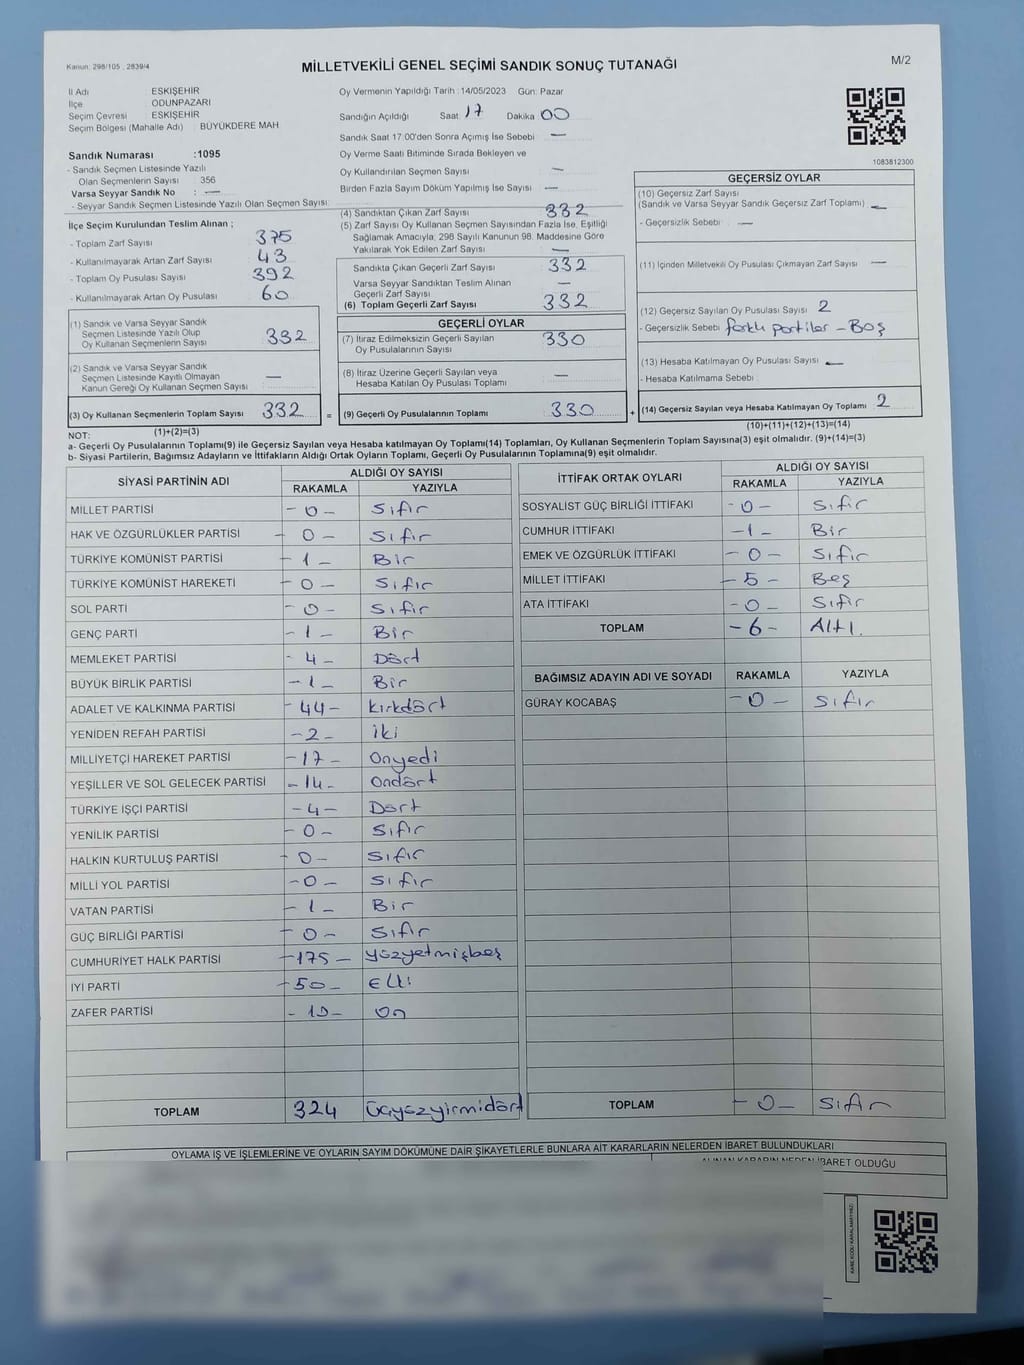 Kanun: 298/105 , 2839/4
MİLLETVEKİLİ GENEL SEÇİMİ SANDIK SONUÇ TUTANAĞI
M/2
İl Adı : ESKİŞEHİR
İlçe : ODUNPAZARI
Seçim Çevresi : ESKİŞEHİR
Seçim Bölgesi (Mahalle Adı) BÜYÜKDERE MAH
Sandık Numarası :1095
- Sandık Seçmen Listesinde Yazılı
Olan Seçmenlerin Sayısı : 356
Varsa Seyyar Sandık No : —
- Seyyar Sandık Seçmen Listesinde Yazılı Olan Seçmen Sayısı:
Oy Vermenin Yapıldığı Tarih : 14/05/2023 Gün: Pazar
Sandığın Açıldığı Saat 17 Dakika 00
Sandık Saat 17:00'den Sonra Açımış İse Sebebi —
Oy Verme Saati Bitiminde Sırada Bekleyen ve
Oy Kullandırılan Seçmen Sayısı —
Birden Fazla Sayım Döküm Yapılmış İse Sayısı —
1083812300
İlçe Seçim Kurulundan Teslim Alınan ;
- Toplam Zarf Sayısı 375
- Kullanılmayarak Artan Zarf Sayısı 43
- Toplam Oy Pusulası Sayısı 392
- Kullanılmayarak Artan Oy Pusulası 60
(1) Sandık ve Varsa Seyyar Sandık
Seçmen Listesinde Yazılı Olup
Oy Kullanan Seçmenlerin Sayısı 332
(2) Sandık ve Varsa Seyyar Sandık
Seçmen Listesinde Kayıtlı Olmayan
Kanun Gereği Oy Kullanan Seçmen Sayısı —
(3) Oy Kullanan Seçmenlerin Toplam Sayısı 332
(1)+(2)=(3)
(4) Sandıktan Çıkan Zarf Sayısı 332
(5) Zarf Sayısı Oy Kullanan Seçmen Sayısından Fazla İse, Eşitliği
Sağlamak Amacıyla, 298 Sayılı Kanunun 98. Maddesine Göre
Yakılarak Yok Edilen Zarf Sayısı —
Sandıkta Çıkan Geçerli Zarf Sayısı 332
Varsa Seyyar Sandıktan Teslim Alınan
Geçerli Zarf Sayısı —
(6) Toplam Geçerli Zarf Sayısı 332
GEÇERLİ OYLAR
(7) İtiraz Edilmeksizin Geçerli Sayılan
Oy Pusulalarının Sayısı 330
(8) İtiraz Üzerine Geçerli Sayılan veya
Hesaba Katılan Oy Pusulası Toplamı —
= (9) Geçerli Oy Pusulalarının Toplamı 330
GEÇERSİZ OYLAR
(10) Geçersiz Zarf Sayısı
(Sandık ve Varsa Seyyar Sandık Geçersiz Zarf Toplamı) —
- Geçersizlik Sebebi : —
(11) İçinden Milletvekili Oy Pusulası Çıkmayan Zarf Sayısı —
(12) Geçersiz Sayılan Oy Pusulası Sayısı 2
- Geçersizlik Sebebi farklı partiler - Boş
(13) Hesaba Katılmayan Oy Pusulası Sayısı —
- Hesaba Katılmama Sebebi
+ (14) Geçersiz Sayılan veya Hesaba Katılmayan Oy Toplamı 2
(10)+(11)+(12)+(13)=(14)
NOT:
a- Geçerli Oy Pusulalarının Toplamı(9) ile Geçersiz Sayılan veya Hesaba katılmayan Oy Toplamı(14) Toplamları, Oy Kullanan Seçmenlerin Toplam Sayısına(3) eşit olmalıdır. (9)+(14)=(3)
b- Siyasi Partilerin, Bağımsız Adayların ve İttifakların Aldığı Ortak Oyların Toplamı, Geçerli Oy Pusulalarının Toplamına(9) eşit olmalıdır.
SİYASİ PARTİNİN ADI ALDIĞI OY SAYISI
RAKAMLA YAZIYLA
MİLLET PARTİSİ -0- Sıfır
HAK VE ÖZGÜRLÜKLER PARTİSİ -0- Sıfır
TÜRKİYE KOMÜNİST PARTİSİ -1- Bir
TÜRKİYE KOMÜNİST HAREKETİ -0- Sıfır
SOL PARTİ -0- Sıfır
GENÇ PARTİ -1- Bir
MEMLEKET PARTİSİ -4- Dört
BÜYÜK BİRLİK PARTİSİ -1- Bir
ADALET VE KALKINMA PARTİSİ -44- Kırkdört
YENİDEN REFAH PARTİSİ -2- İki
MİLLİYETÇİ HAREKET PARTİSİ -17- Onyedi
YEŞİLLER VE SOL GELECEK PARTİSİ -14- Ondört
TÜRKİYE İŞÇİ PARTİSİ -4- Dört
YENİLİK PARTİSİ -0- Sıfır
HALKIN KURTULUŞ PARTİSİ -0- Sıfır
MİLLİ YOL PARTİSİ -0- Sıfır
VATAN PARTİSİ -1- Bir
GÜÇ BİRLİĞİ PARTİSİ -0- Sıfır
CUMHURİYET HALK PARTİSİ -175- Yüzyetmişbeş
İYİ PARTİ -50- Elli
ZAFER PARTİSİ -10- On
TOPLAM 324 Üçyüzyirmidört
İTTİFAK ORTAK OYLARI ALDIĞI OY SAYISI
RAKAMLA YAZIYLA
SOSYALİST GÜÇ BİRLİĞİ İTTİFAKI -0- Sıfır
CUMHUR İTTİFAKI -1- Bir
EMEK VE ÖZGÜRLÜK İTTİFAKI -0- Sıfır
MİLLET İTTİFAKI -5- Beş
ATA İTTİFAKI -0- Sıfır
TOPLAM -6- Altı.
BAĞIMSIZ ADAYIN ADI VE SOYADI RAKAMLA YAZIYLA
GÜRAY KOCABAŞ -0- Sıfır
TOPLAM -0- Sıfır
OYLAMA İŞ VE İŞLEMLERİNE VE OYLARIN SAYIM DÖKÜMÜNE DAİR ŞİKAYETLERLE BUNLARA AİT KARARLARIN NELERDEN İBARET BULUNDUKLARI
ALINAN KARARIN NEDEN İBARET OLDUĞU